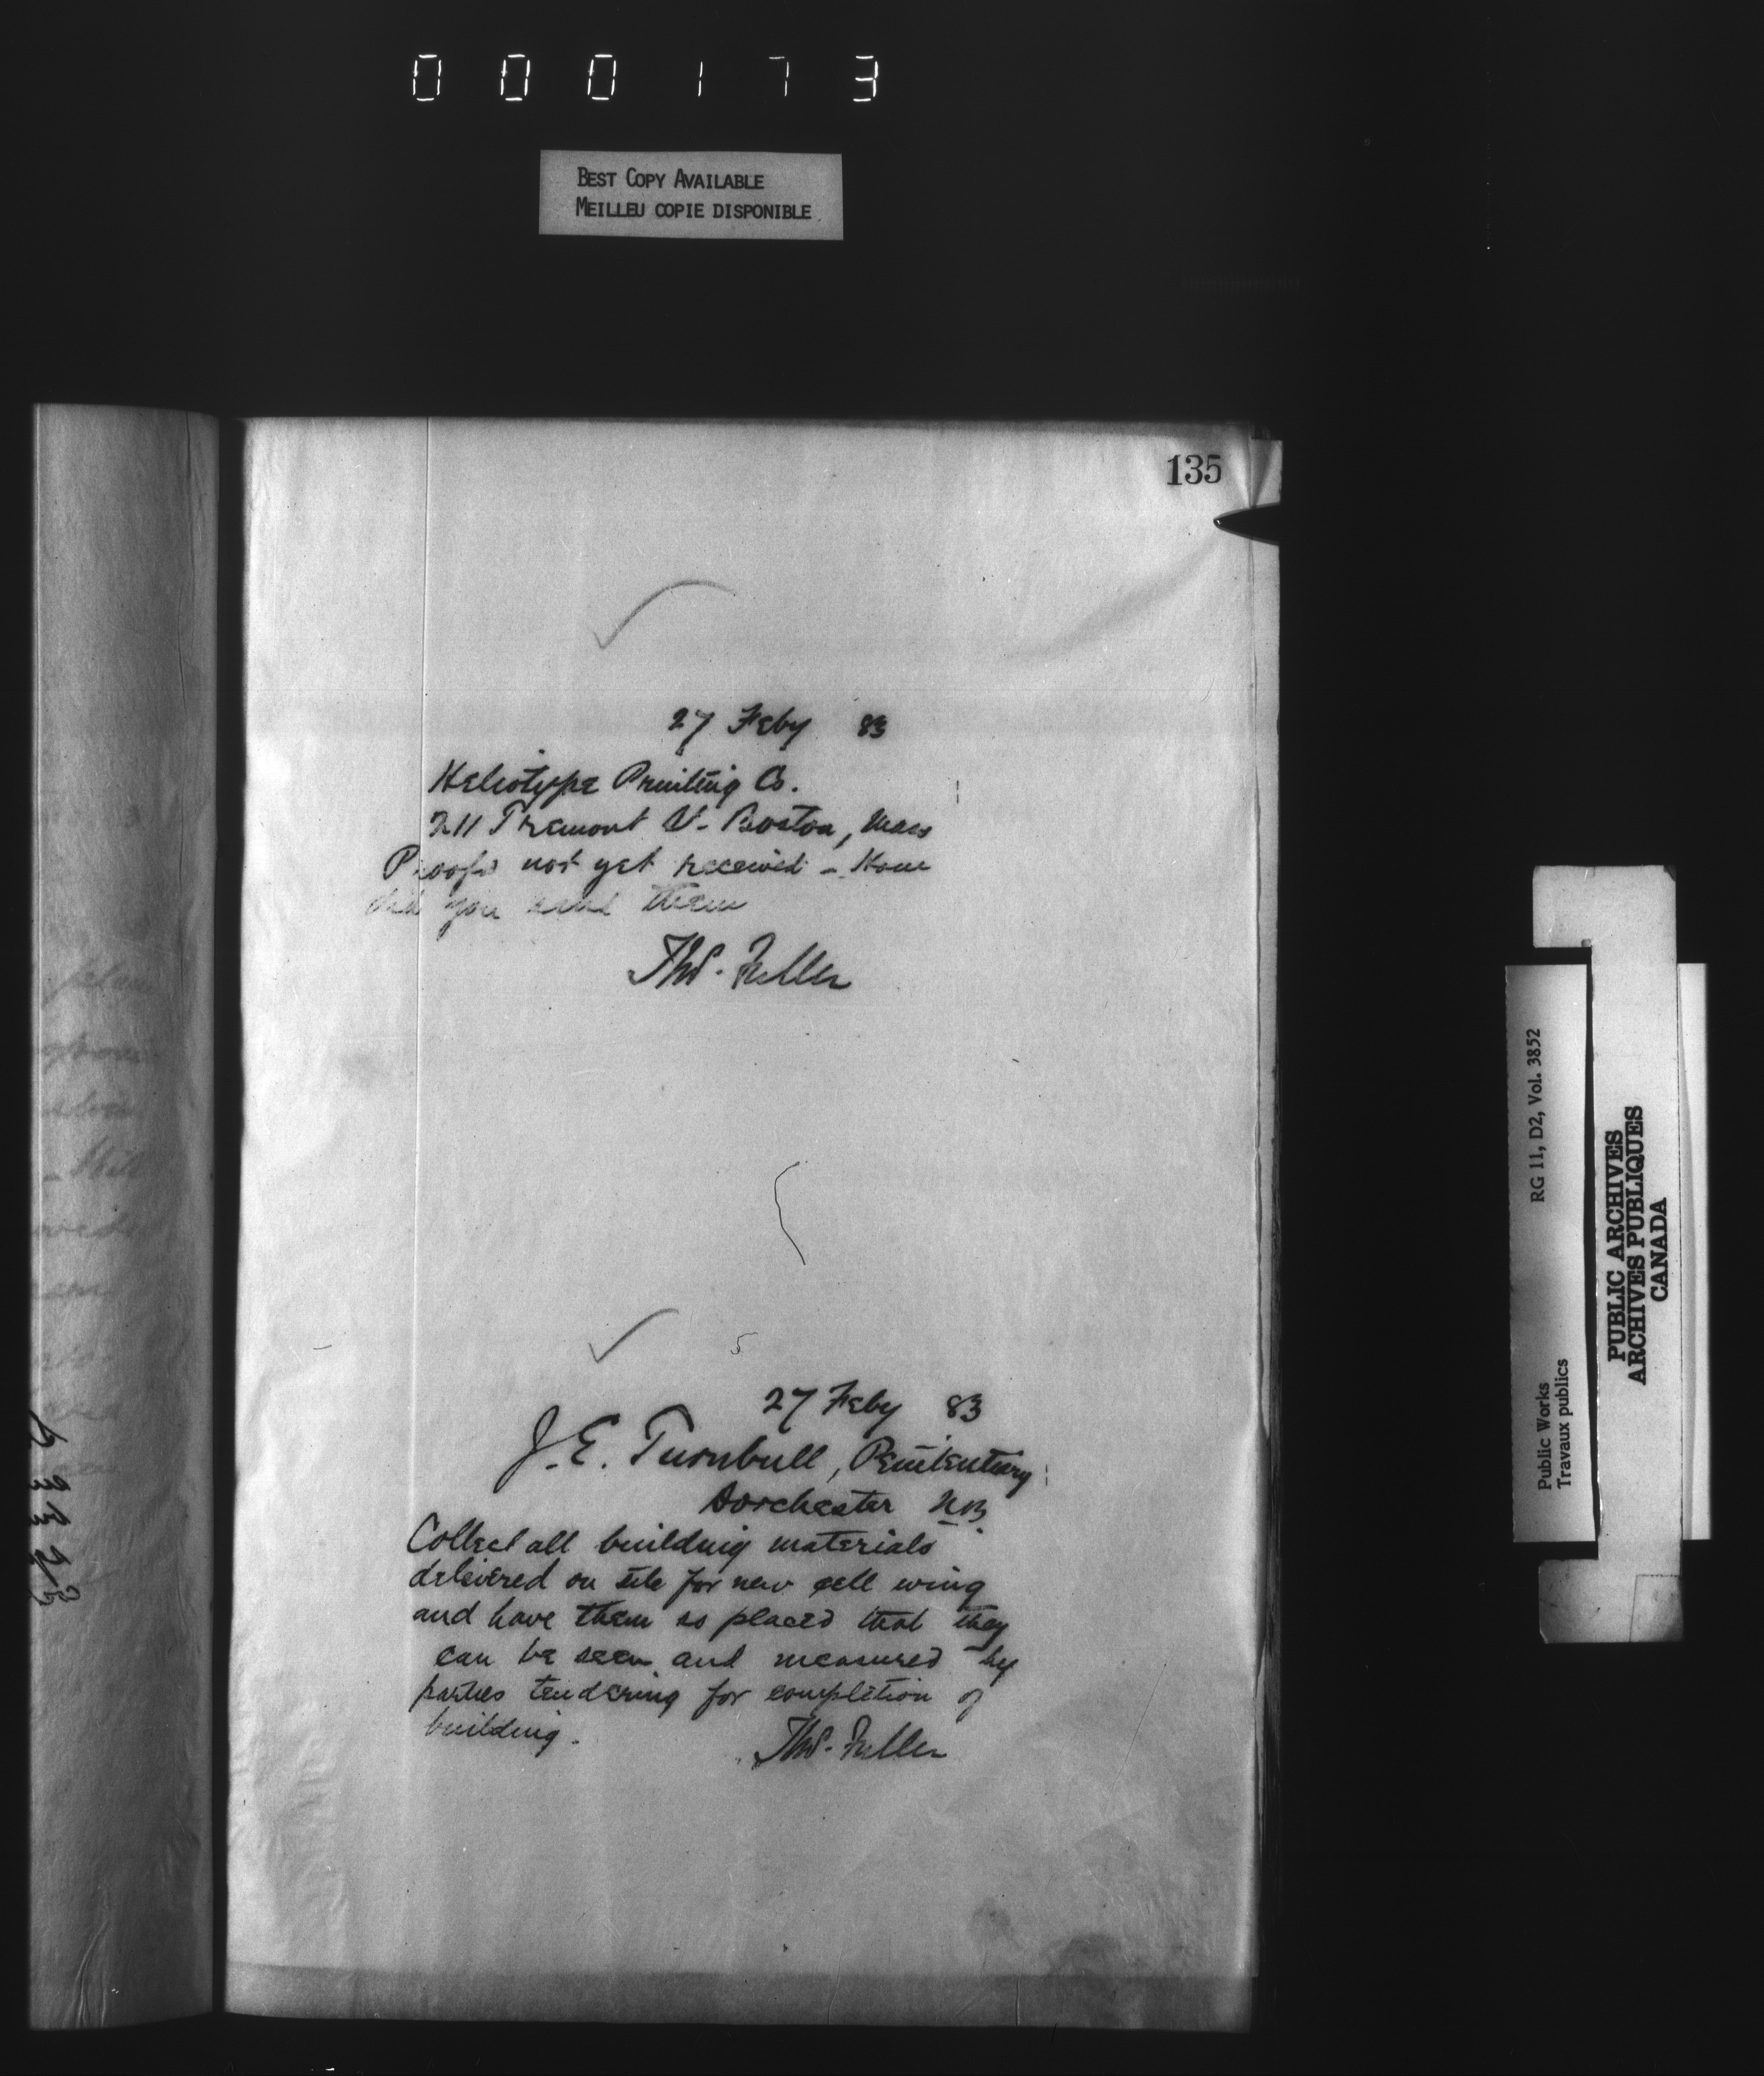 000173
BEST COPY AVAILABLE
MEILLEU COPIE DISPONIBLE
135
27 Feby 83
Heliotype Printing Co.
211 Tremont St. Boston, Mass
Proofs not yet received - How
did you send them
Thos. Fuller
5
27 Feby 83
J. E. Turnbull, Penitentiary
Dorchester N.B.
Collect all building materials
delivered on site for new cell wing
and have them so placed that they
can be seen and measured by
parties tendering for completion of
building.
Thos. Fuller
RG 11, D2, Vol. 3852
Public Works
Travaux publics
PUBLIC ARCHIVES
ARCHIVES PUBLIQUES
CANADA